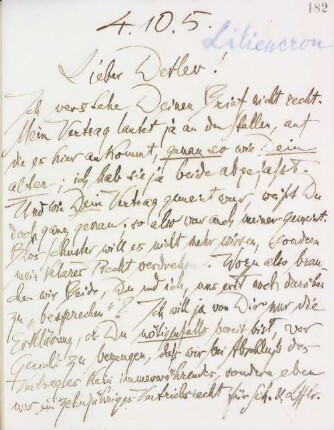 182
4.10.5.
Liliencron
Lieber Detlev!
Ich verstehe Deinen Brief nicht recht.
Mein Vertrag lautet ja an den Stellen, auf
die es hier ankommt, genau so wie Dein
alter; ich hab sie ja beide abgefaßt.
Und wie Dein Vertrag gemeint war, weißt Du
doch ganz genau; so also war auch meiner gemeint.
Blos Schuster will es nicht mehr wissen, sondern
mein klares Recht verdrehn. Wozu also brau-
chen wir Beide, Du und ich, uns erst noch darüber
zu „besprechen"? Ich will ja von Dir nur die
Erklärung, ob Du nötigenfalls bereit bist, vor
Gericht zu bezeugen, daß wir bei Abschluß des
Vertrages kein immerwährendes, sondern eben
nur ein zehnjähriges Vertriebsrecht für Sch. u. Lffl.